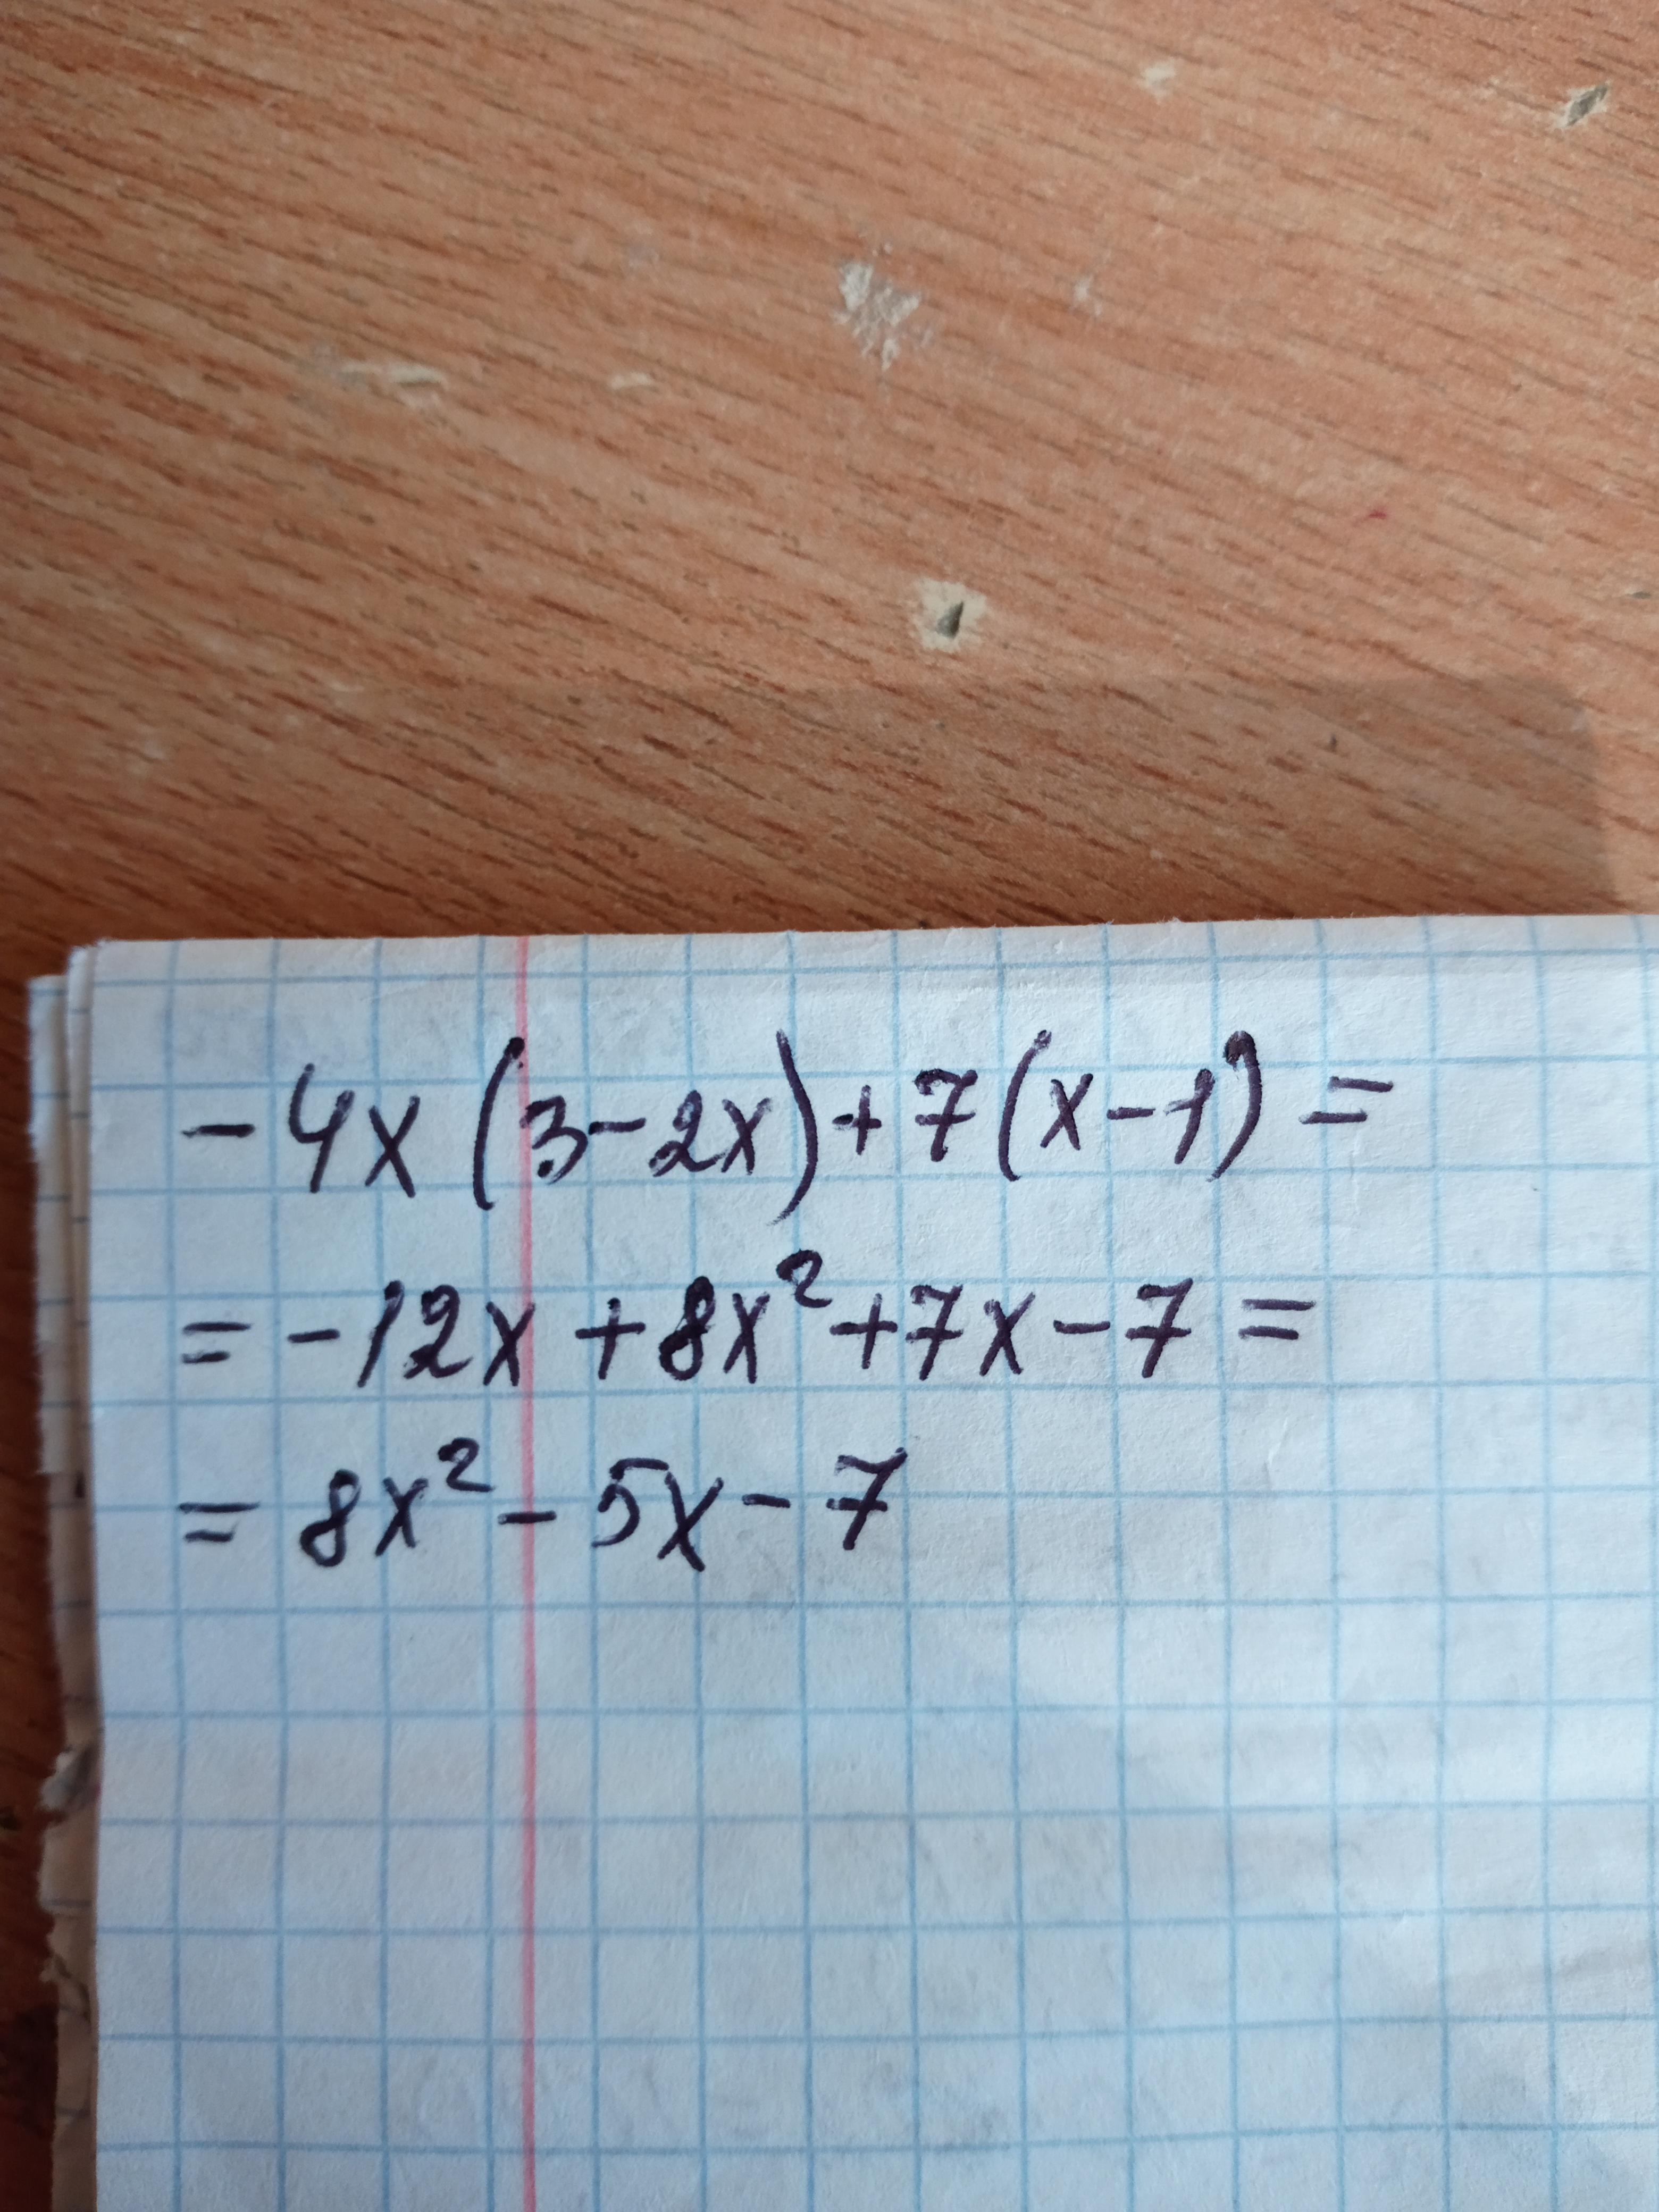 -4x(3-2x)+7(x-1)=
=-12x+8x²+7x-7=
=8x²-5x-7